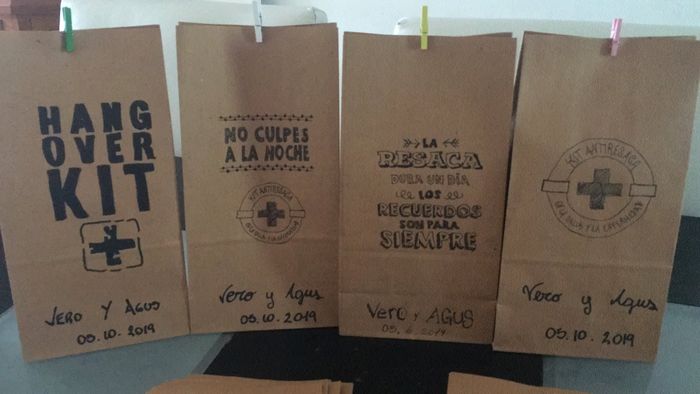 HANG
OVER
KIT
VERO Y AGUS
05.10.2019
NO CULPES
A LA NOCHE
KIT ANTIRESACA
Vero y Agus
05.10.2019
LA
RESACA
DURA UN DÍA
LOS
RECUERDOS
SON PARA
SIEMPRE
VERO Y AGUS
KIT ANTIRESACA
Vero y Agus
05.10.2019